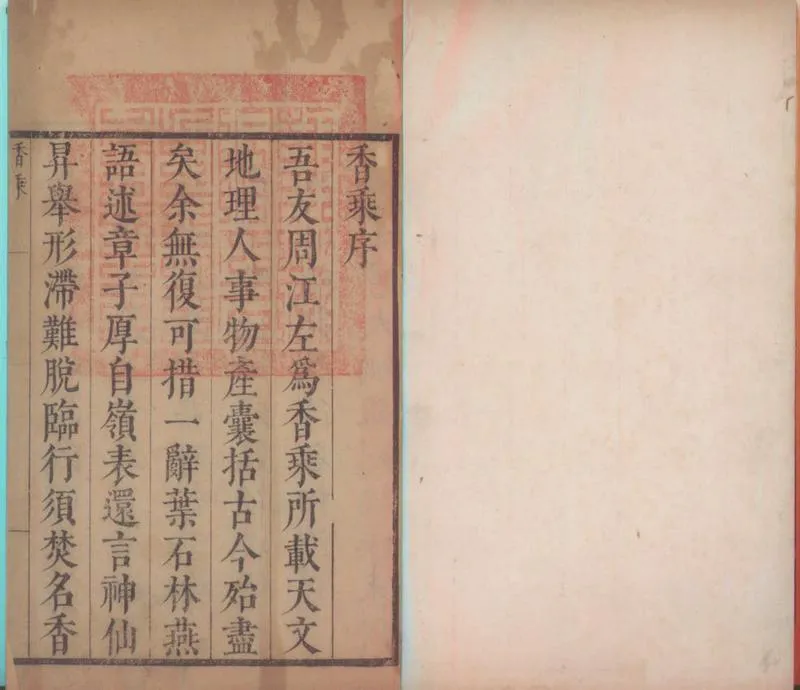 香乘序
吾友周江左爲香乘所載天文
地理人事物產囊括古今殆盡
矣余無復可措一辭葉石林燕
語述章子厚自嶺表還言神仙
昇舉形滯難脫臨行須焚名香
香乘